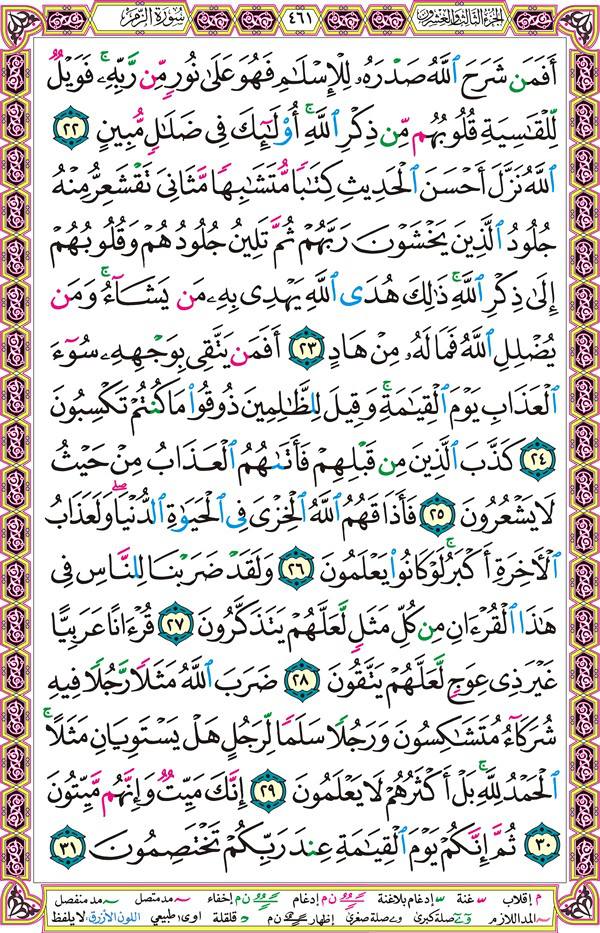 الجزء الثالث والعشرون
٤٦١
سورة الزمر
أَفَمَن شَرَحَ ٱللَّهُ صَدْرَهُۥ لِلْإِسْلَٰمِ فَهُوَ عَلَىٰ نُورٍ مِّن رَّبِّهِۦ ۚ فَوَيْلٌ
لِّلْقَٰسِيَةِ قُلُوبُهُم مِّن ذِكْرِ ٱللَّهِ ۚ أُو۟لَٰٓئِكَ فِى ضَلَٰلٍ مُّبِينٍ ٢٢
ٱللَّهُ نَزَّلَ أَحْسَنَ ٱلْحَدِيثِ كِتَٰبًا مُّتَشَٰبِهًا مَّثَانِىَ تَقْشَعِرُّ مِنْهُ
جُلُودُ ٱلَّذِينَ يَخْشَوْنَ رَبَّهُمْ ثُمَّ تَلِينُ جُلُودُهُمْ وَقُلُوبُهُمْ
إِلَىٰ ذِكْرِ ٱللَّهِ ۚ ذَٰلِكَ هُدَى ٱللَّهِ يَهْدِى بِهِۦ مَن يَشَآءُ ۚ وَمَن
يُضْلِلِ ٱللَّهُ فَمَا لَهُۥ مِنْ هَادٍ ٢٣ أَفَمَن يَتَّقِى بِوَجْهِهِۦ سُوٓءَ
ٱلْعَذَابِ يَوْمَ ٱلْقِيَٰمَةِ ۚ وَقِيلَ لِلظَّٰلِمِينَ ذُوقُوا۟ مَا كُنتُمْ تَكْسِبُونَ
٢٤ كَذَّبَ ٱلَّذِينَ مِن قَبْلِهِمْ فَأَتَىٰهُمُ ٱلْعَذَابُ مِنْ حَيْثُ
لَا يَشْعُرُونَ ٢٥ فَأَذَاقَهُمُ ٱللَّهُ ٱلْخِزْىَ فِى ٱلْحَيَوٰةِ ٱلدُّنْيَا ۖ وَلَعَذَابُ
ٱلْءَاخِرَةِ أَكْبَرُ ۚ لَوْ كَانُوا۟ يَعْلَمُونَ ٢٦ وَلَقَدْ ضَرَبْنَا لِلنَّاسِ فِى
هَٰذَا ٱلْقُرْءَانِ مِن كُلِّ مَثَلٍ لَّعَلَّهُمْ يَتَذَكَّرُونَ ٢٧ قُرْءَانًا عَرَبِيًّا
غَيْرَ ذِى عِوَجٍ لَّعَلَّهُمْ يَتَّقُونَ ٢٨ ضَرَبَ ٱللَّهُ مَثَلًا رَّجُلًا فِيهِ
شُرَكَآءُ مُتَشَٰكِسُونَ وَرَجُلًا سَلَمًا لِّرَجُلٍ هَلْ يَسْتَوِيَانِ مَثَلًا ۚ
ٱلْحَمْدُ لِلَّهِ ۚ بَلْ أَكْثَرُهُمْ لَا يَعْلَمُونَ ٢٩ إِنَّكَ مَيِّتٌ وَإِنَّهُم مَّيِّتُونَ
٣٠ ثُمَّ إِنَّكُمْ يَوْمَ ٱلْقِيَٰمَةِ عِندَ رَبِّكُمْ تَخْتَصِمُونَ ٣١
م إقلاب غنة إدغام بلاغنة ن م إدغام ن م إخفاء مد متصل مد منفصل
المد اللازم صلة كبرى صلة صغرى إظهار ن م قلقلة اوى طبيعي اللون الأزرق: لا يلفظ